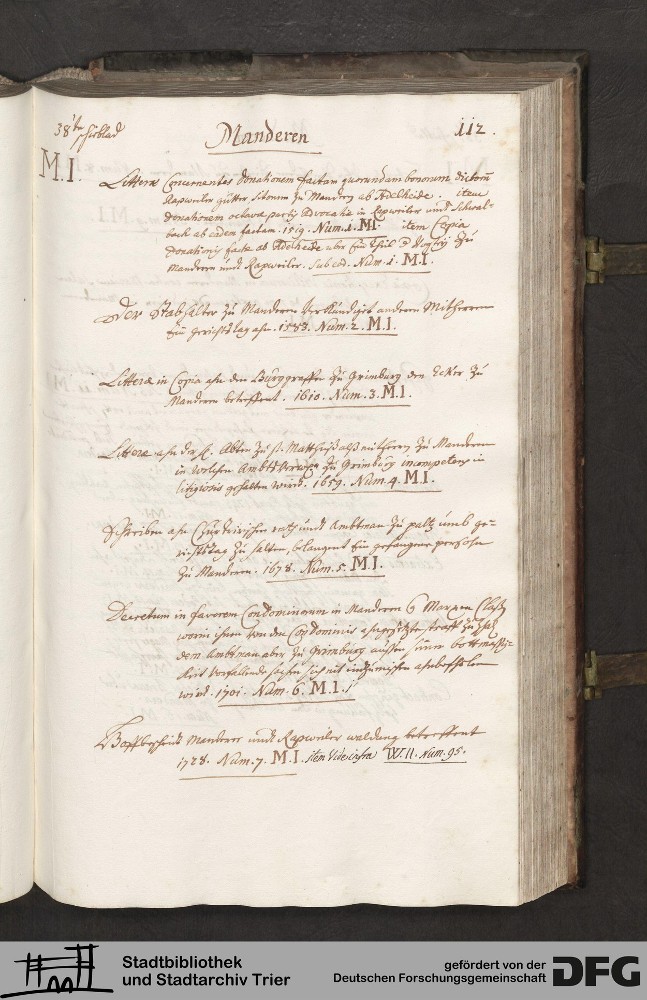 38te schiblad
Manderen
112.
M.I.
Litterae Concernentes donationem factam quorundam bonorum dictorum
Rapweiler gütter sitorum zu Manderen ab Adelheide. item
donationem octavae partis Advocatiae in Rapweiler und Schwal-
bach ab eadem factam. 1519. Num. 1. M.I. item Copia
donationis factae ab Adelheide uber ein theil Vogtey zu
Manderen und Rapweiler. sub eod. Num. 1. M.I.
Der Stabhalter zu Manderen verkündiget anderen Mitherren
ein gerichtstag ahn. 1583. Num. 2. M.I.
Litterae in Copia ahn den Burggraffen zu Grimburg den Ecker zu
Manderen betreffent. 1610. Num. 3. M.I.
Litterae ahn Abten zu St. Matthiß alß mitherrn zu Manderen
in welchen Ambtsverwalter zu Grimburg incompetens in
litigiosis gehalten wird. 1659. Num. 4. M.I.
Schreiben ahn Churtrierischen rath und Ambtman zu paltz umb ge-
richtstag zu halten, belangent ein gefangene persohn
zu Manderen. 1678. Num. 5. M.I.
Decretum in favorem Condominorum in Manderen
worin ihnen von den Condominis ahngesetzte straff
dem Ambtman aber zu Grimburg
sich nit einzumischen ahnbefohlen
wird. 1701. Num. 6. M.I.
Manderer und Rapweiler waldung betreffent
1728. Num. 7. M.I. item Vide infra W.II. Num. 95.
Stadtbibliothek
und Stadtarchiv Trier
gefördert von der
Deutschen Forschungsgemeinschaft
DFG